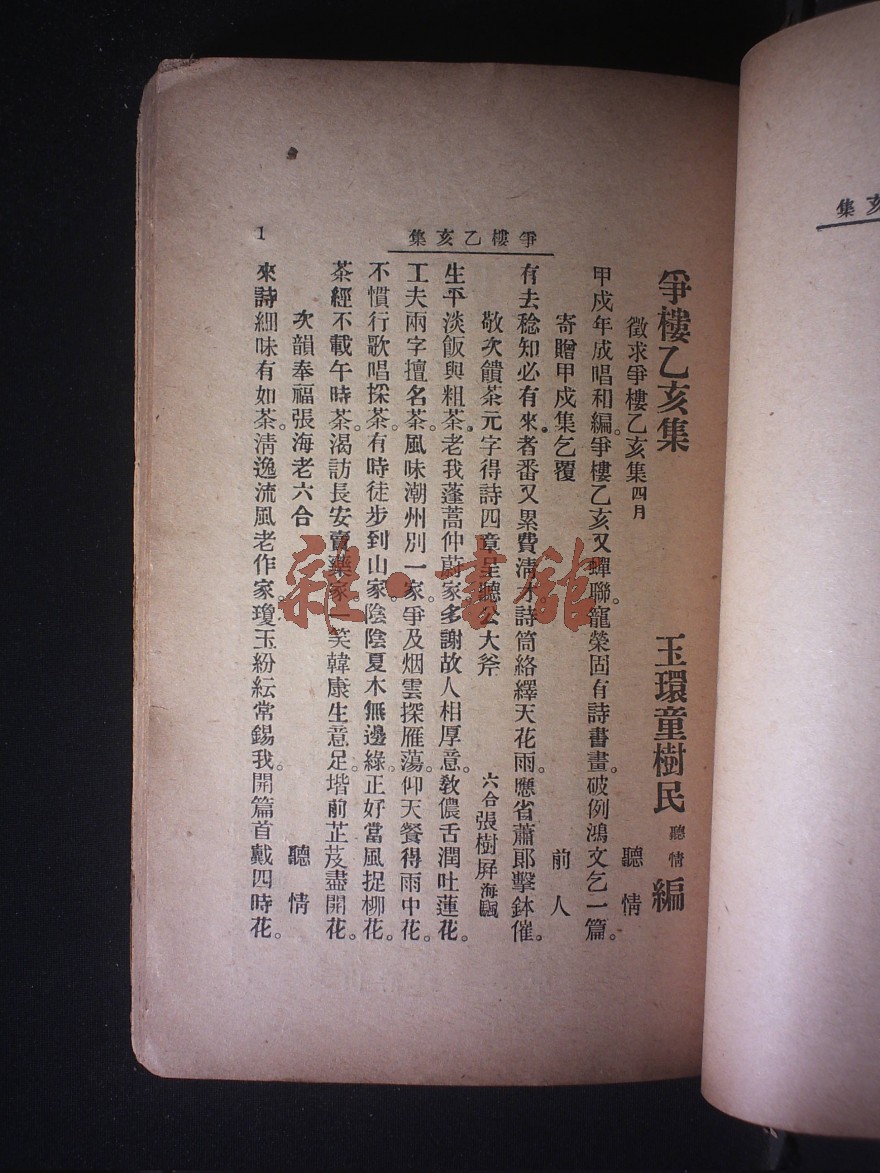 爭樓乙亥集
爭樓乙亥集　玉環童樹民聽情編
徵求爭樓乙亥集四月　聽情
甲戍年成唱和編。爭樓乙亥又蟬聯。寵榮固有詩書畫。破例鴻文乞一篇。
寄贈甲戍集乞覆　前人
有去稔知必有來。者番又累費清才。詩筒絡繹天花雨。應省蕭郞擊鉢催。
敬次饋茶元字得詩四章呈聽公大斧　六合張樹屏海颿
生平淡飯與粗茶。老我蓬蒿仲蔚家。多謝故人相厚意。敎儂舌潤吐蓮花。
工夫兩字擅名茶。風味潮州別一家。爭及烟雲探雁蕩。仰天餐得雨中花。
不慣行歌唱採茶。有時徒步到山家。陰陰夏木無邊綠。正好當風捉柳花。
茶經不載午時茶。渴訪長安賣藥家。一笑韓康生意足。堦前芷芨盡開花。
次韻奉福張海老六合　聽情
來詩細味有如茶。淸逸流風老作家。瓊玉紛紜常錫我。開篇首戴四時花。
1
雜·書館
亥集